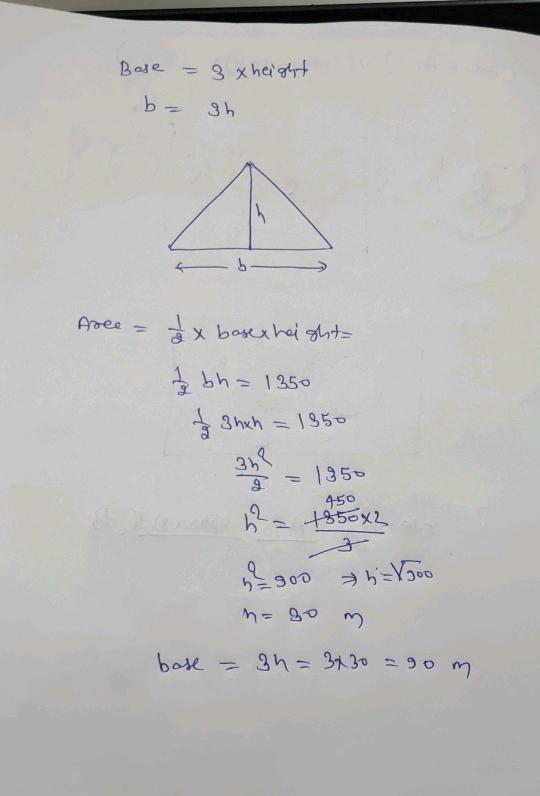 Base = 3 x height
b = 3h
h
b
Area = 1/2 x base x height =
1/2 bh = 1350
1/2 3h x h = 1350
3h²/2 = 1350
450
h² = 1350 x 2 / 3
h² = 900 ⇒ h = √900
h = 30 m
base = 3h = 3 x 30 = 90 m